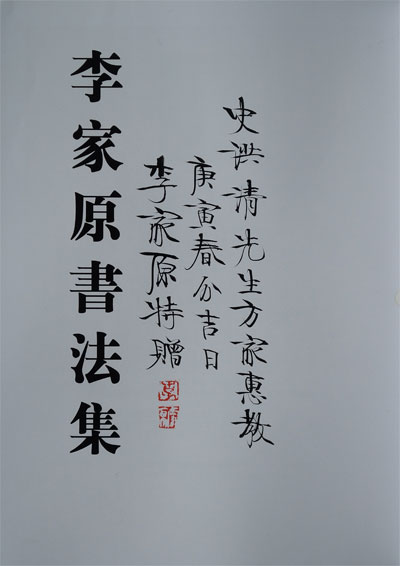 史洪清先生方家惠教
庚寅春分吉日
李家原特赠
李家原書法集